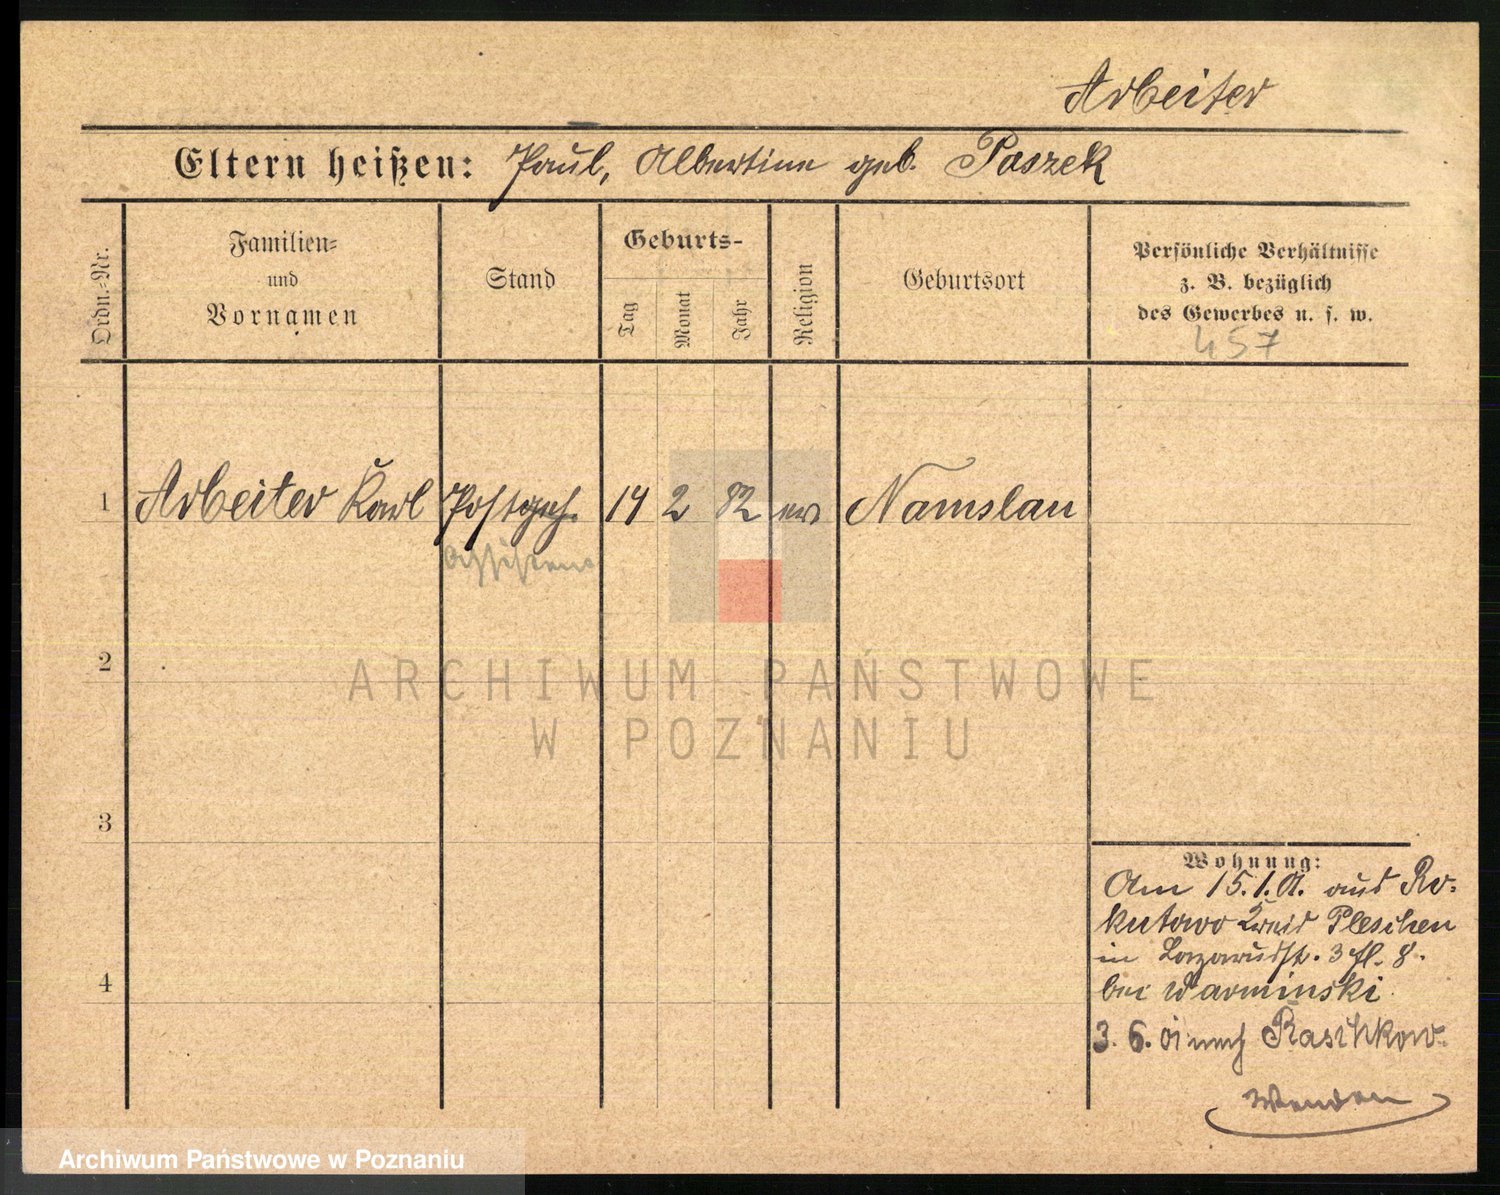 Arbeiter
Eltern heißen: Paul, Albertine geb. Paszek
Ordn.-Nr.
Familien-
und
Vornamen
Stand
Geburts-
Tag
Monat
Jahr
Religion
Geburtsort
Persönliche Verhältnisse
z. B. bezüglich
des Gewerbes u. s. w.
457
1 Arbeiter Karl Postgeh. 14 2 82 ev Namslau
Assistent
2
3
4
ARCHIWUM PAŃSTWOWE
W POZNANIU
Wohnung:
Am 15.1.01. aus Ro-
kutowo Kreis Pleschen
in Lazarusstr. 3 fl. 8.
bei Warminski
3. 6. 01 nach Raschkow.
Wenden
Archiwum Państwowe w Poznaniu